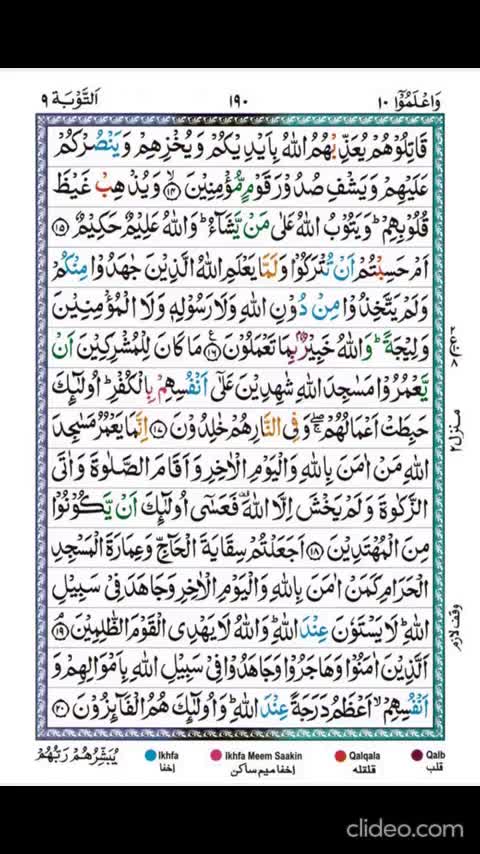 وَاعْلَمُوْٓا ١٠
١٩٠
اَلتَّوْبَة ٩
قَاتِلُوْهُمْ يُعَذِّبْهُمُ اللّٰهُ بِاَيْدِيْكُمْ وَيُخْزِهِمْ وَيَنْصُرْكُمْ
عَلَيْهِمْ وَيَشْفِ صُدُوْرَ قَوْمٍ مُّؤْمِنِيْنَ ۙ﴿١٤﴾ وَيُذْهِبْ غَيْظَ
قُلُوْبِهِمْ ؕ وَيَتُوْبُ اللّٰهُ عَلٰى مَنْ يَّشَآءُ ؕ وَاللّٰهُ عَلِيْمٌ حَكِيْمٌ ﴿١٥﴾
اَمْ حَسِبْتُمْ اَنْ تُتْرَكُوْا وَلَمَّا يَعْلَمِ اللّٰهُ الَّذِيْنَ جٰهَدُوْا مِنْكُمْ
وَلَمْ يَتَّخِذُوْا مِنْ دُوْنِ اللّٰهِ وَلَا رَسُوْلِهٖ وَلَا الْمُؤْمِنِيْنَ
وَلِيْجَةً ؕ وَاللّٰهُ خَبِيْرٌۢ بِمَا تَعْمَلُوْنَ ﴿١٦﴾ مَا كَانَ لِلْمُشْرِكِيْنَ اَنْ
يَّعْمُرُوْا مَسٰجِدَ اللّٰهِ شٰهِدِيْنَ عَلٰٓى اَنْفُسِهِمْ بِالْكُفْرِ ؕ اُولٰٓئِكَ
حَبِطَتْ اَعْمَالُهُمْ ۖۚ وَفِى النَّارِ هُمْ خٰلِدُوْنَ ﴿١٧﴾ اِنَّمَا يَعْمُرُ مَسٰجِدَ
اللّٰهِ مَنْ اٰمَنَ بِاللّٰهِ وَالْيَوْمِ الْاٰخِرِ وَاَقَامَ الصَّلٰوةَ وَاٰتَى
الزَّكٰوةَ وَلَمْ يَخْشَ اِلَّا اللّٰهَ فَعَسٰٓى اُولٰٓئِكَ اَنْ يَّكُوْنُوْا
مِنَ الْمُهْتَدِيْنَ ﴿١٨﴾ اَجَعَلْتُمْ سِقَايَةَ الْحَآجِّ وَعِمَارَةَ الْمَسْجِدِ
الْحَرَامِ كَمَنْ اٰمَنَ بِاللّٰهِ وَالْيَوْمِ الْاٰخِرِ وَجَاهَدَ فِىْ سَبِيْلِ
اللّٰهِ ؕ لَا يَسْتَوٗنَ عِنْدَ اللّٰهِ ؕ وَاللّٰهُ لَا يَهْدِى الْقَوْمَ الظّٰلِمِيْنَ ۘ﴿١٩﴾
اَلَّذِيْنَ اٰمَنُوْا وَهَاجَرُوْا وَجَاهَدُوْا فِىْ سَبِيْلِ اللّٰهِ بِاَمْوَالِهِمْ وَ
اَنْفُسِهِمْ ۙ اَعْظَمُ دَرَجَةً عِنْدَ اللّٰهِ ؕ وَاُولٰٓئِكَ هُمُ الْفَآئِزُوْنَ ﴿٢٠﴾
منزل ٢
وقف لازم
يُبَشِّرُهُمْ رَبُّهُمْ
Ikhfa
اخفا
Ikhfa Meem Saakin
اخفا ميم ساكن
Qalqala
قلقله
Qalb
قلب
clideo.com